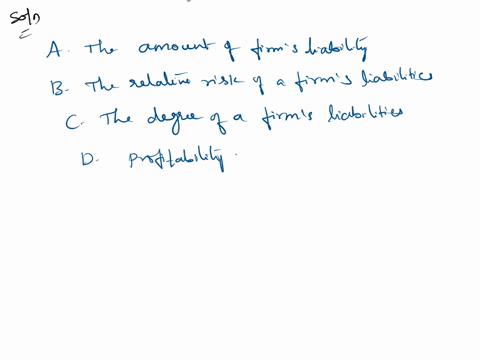 Soln
A. The amount of firm's liability
B. The relative risk of a firm's liabilities
C. The degree of a firm's liabilities
D. Profitability.